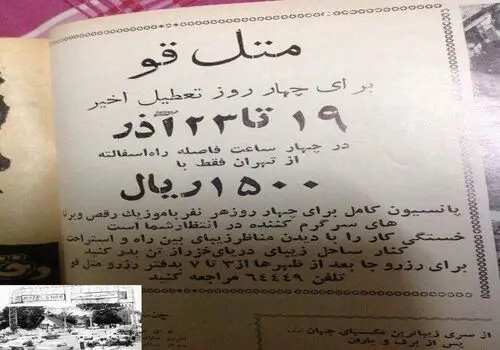 متل قو
برای چهار روز تعطیل اخیر
۱۹ تا ۲۳ آذر
در چهار ساعت فاصله راه اسفالته
از تهران فقط با
۱۵۰۰ ریال
پانسیون کامل برای چهار روز هر نفر با موزیک رقص و برنا
های سرگرم کننده در انتظار شما است
خستگی کار را با دیدن مناظر زیبای بین راه و استراحت
کنار ساحل زیبای دریای خزر از تن بدر کنید
برای رزرو جا بعد از ظهرها از ۳ تا ۷ بدفتر رزرو متل قو
تلفن ۶۴۴۴۹ مراجعه کنید
از سری زیباترین عکسهای جهان ...
پس از برف و باران
MOTEL GHOO